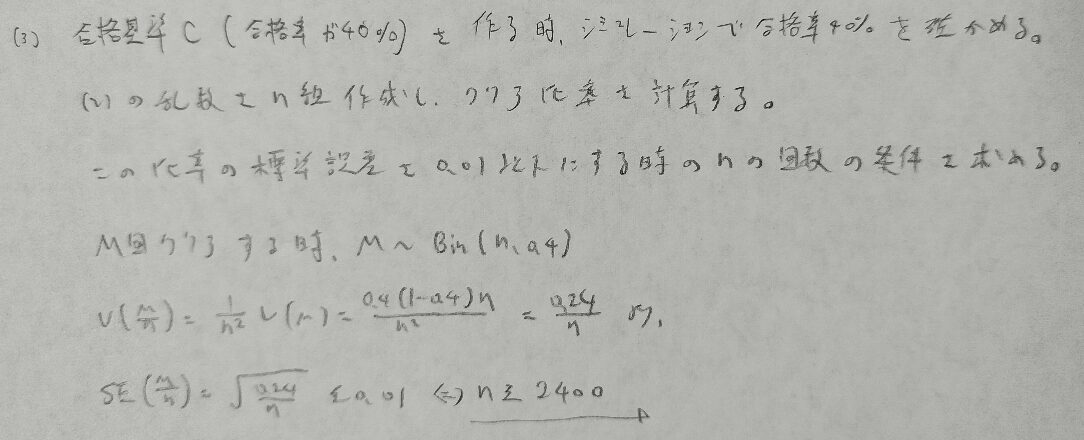 (3) 合格基準C (合格率が40%) を 作る時、シミュレーションで合格率40% を確かめる。
(2) の乱数をn組作成し、クリア比率を計算する。
この比率の標準誤差を0.01以下にする時のnの回数の条件を求める。
M回クリアする時、M ~ Bin(n, 0.4)
V(M/n) = 1/n² V(M) = 0.4(1-0.4)n/n² = 0.24/n より,
SE(M/n) = √(0.24/n) ≦ 0.01 ⇔ n ≧ 2400